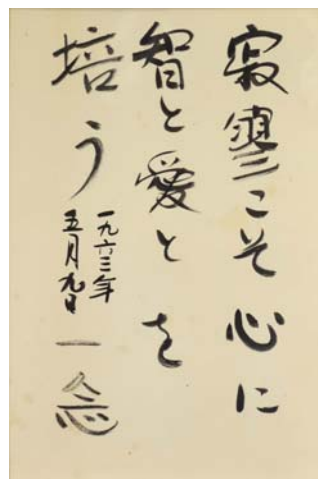 寂寥こそ心に
智と愛とを
培う
一九六三年
五月九日
一念